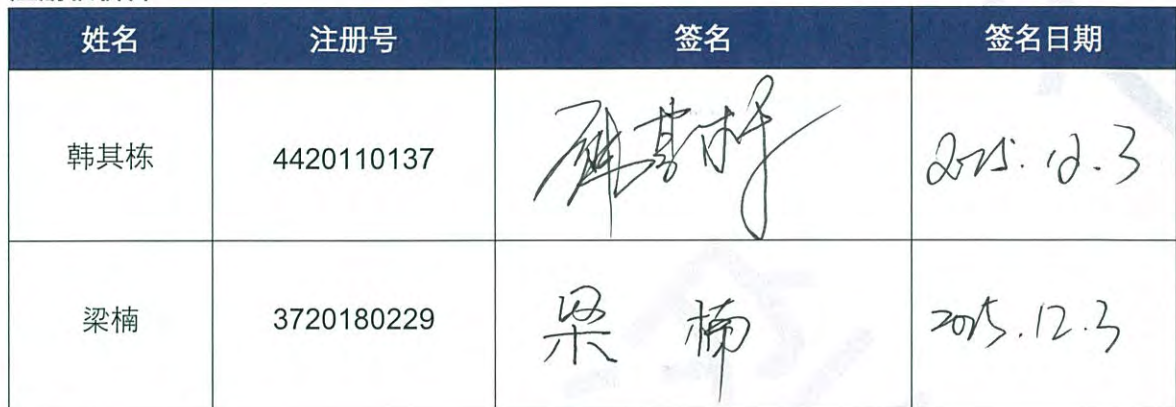 姓名 注册号 签名 签名日期
韩其栋 4420110137 韩其栋 2025.12.3
梁楠 3720180229 梁楠 2025.12.3